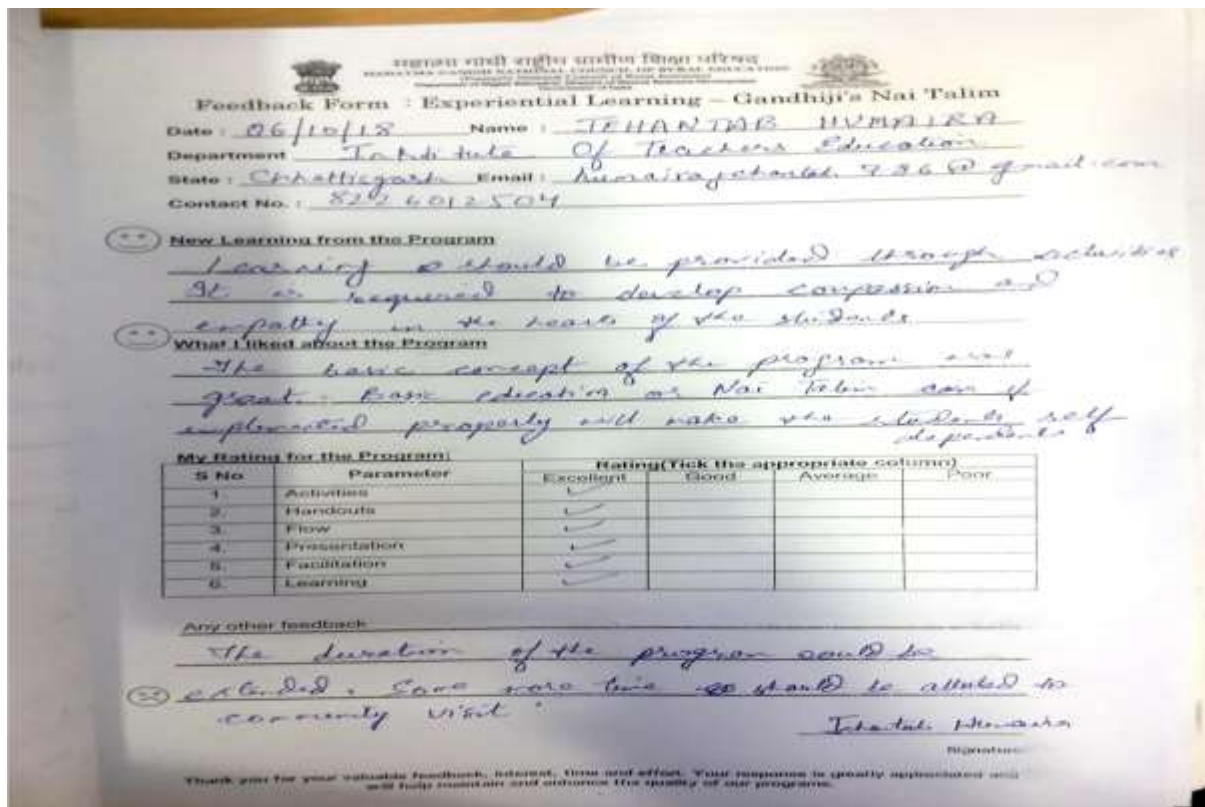 महात्मा गांधी राष्ट्रीय ग्रामीण शिक्षा परिषद
MAHATMA GANDHI NATIONAL COUNCIL OF RURAL EDUCATION
Feedback Form : Experiential Learning – Gandhiji's Nai Talim
Date : 06/10/18 Name : JEHANTAB HUMAIRA
Department Institute Of Teachers Education
State : Chhattisgarh Email : 786@gmail.com
Contact No. :
New Learning from the Program
Learning should be provided through activities
It is required to develop compassion and
empathy in the hearts of the students
What I liked about the Program
The basic concept of the program was
great. Basic education or Nai Talim can if
implemented properly will make the students self
dependents
My Rating for the Program:
S No Parameter Rating(Tick the appropriate column)
Excellent Good Average Poor
1. Activities ✓
2. Handouts ✓
3. Flow ✓
4. Presentation ✓
5. Facilitation ✓
6. Learning ✓
Any other feedback
The duration of the program could be
extended. Some more time should be alloted to
community visit.
Signature
Thank you for your valuable feedback, interest, time and effort. Your response is greatly appreciated and
will help maintain and enhance the quality of our programs.